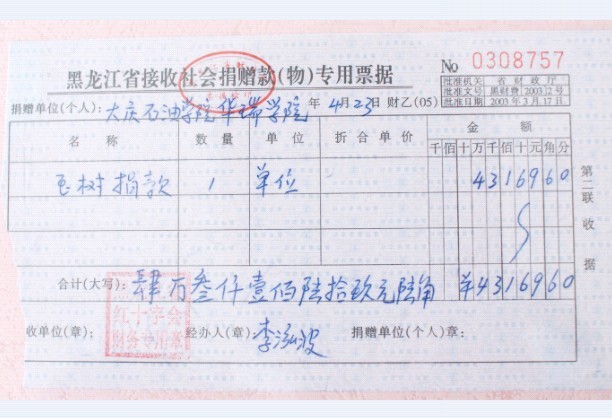 黑龙江省接收社会捐赠款(物)专用票据
No 0308757
批准机关 省财政厅
批准文号 黑财费[2003]2号
批准日期 2003年3月17日
捐赠单位(个人): 大庆石油学院华瑞学院 年 4月23日 财乙(05)
名称 数量 单位 折合单价 金额
千佰十万千佰十元角分
玉树捐款 1 单位 4316960
第二联 收据
合计(大写): 肆万叁仟壹佰陆拾玖元陆角 ¥4316960
红十字会
财务专用章
收单位(章): 经办人(章): 李泓波 捐赠单位(个人)章: